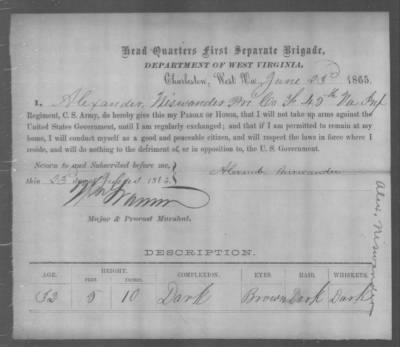 Head Quarters First Separate Brigade,
DEPARTMENT OF WEST VIRGINIA,
Charleston, West Va., June 23d 1865.
I, Alexander Niswander Pvt Co. 45th Va Inf
Regiment, C. S. Army, do hereby give this my PAROLE OF HONOR, that I will not take up arms against the
United States Government, until I am regularly exchanged; and that if I am permitted to remain at my
home, I will conduct myself as a good and peaceable citizen, and will respect the laws in force where
I reside, and will do nothing to the detriment of, or in opposition to, the U. S. Government.
Sworn to and Subscribed before me,
Alexander Niswander
this 23d day of 1865.
Major & Provost Marshal.
Alex. Niswander
DESCRIPTION.
AGE. HEIGHT. COMPLEXION. EYES. HAIR. WHISKERS.
FEET INCHES
5 10 Dark Brown Dark Dark